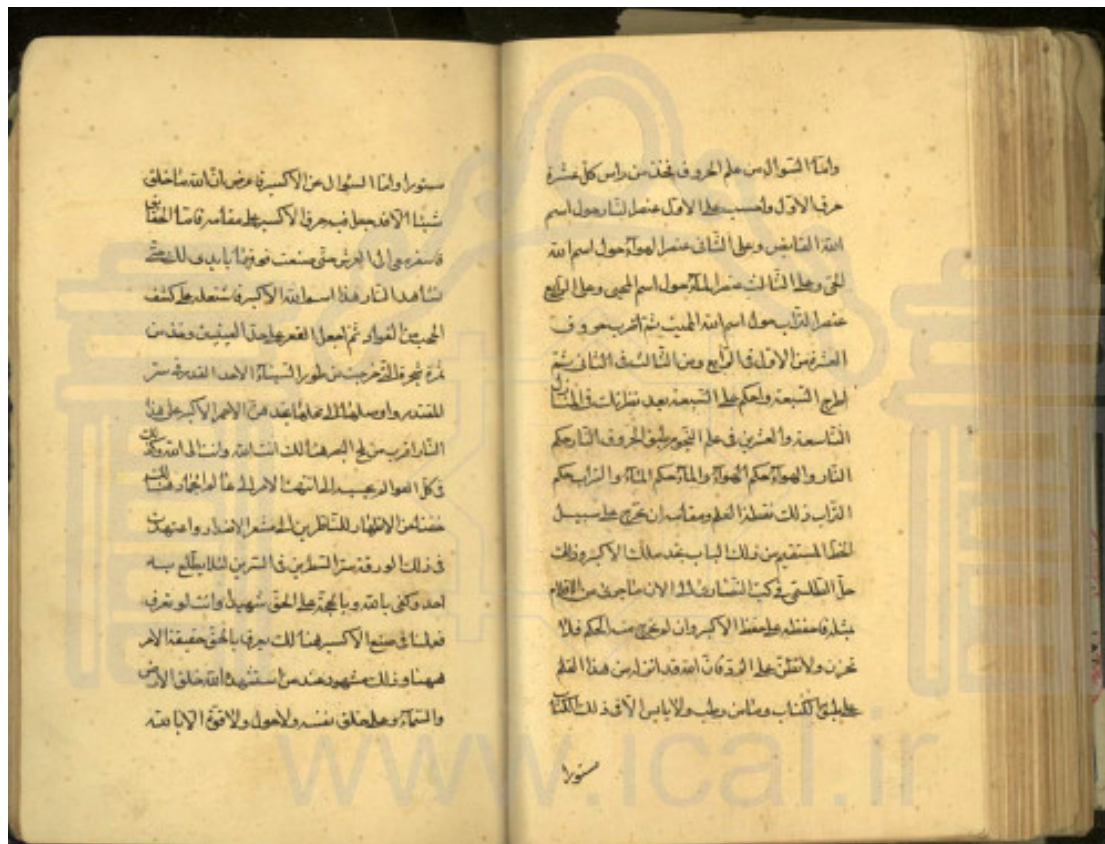 واما السؤال من علم الحروف فخذ من راس كل عشرة
حرف الاول واحسب على الاول عنصر النار حول اسم
الله القابض وعلى الثانى عنصر الهوآء حول اسم الله
الحى وعلى الثالث عنصر المآء حول اسم المحيى وعلى الرابع
عنصر التراب حول اسم الله المميت ثم اضرب حروف
العشرة من الاول فى الرابع ومن الثالث فى الثانى ثم
السبعة واحكم على السبعة بعد نظراتك فى
التاسعة والعشرين فى علم النجوم طبق الحروف النار حكم
النار والهوآء حكم الهوآء والمآء حكم المآء والتراب حكم
التراب ذلك نقطة العلم ومقامه ان تخرج على سبيل
الخط المستقيم من ذلك الباب بقدر ملك الاكبر وذلك
حل الطلسمى فى كتب النصارى الى الان ما جرى من الاقلام
مثله فاحفظه على حفظ الاكبر وان لم تخرج منه الحكم فلا
تحزن ولا تظن على الرد فان الله قد انزل من هذا القلم
على طبق الكتاب وما من رطب ولا يابس الا فى ذلك الكتاب
مستورا
مستورا واما السؤال عن الاكسير فاعرض ان الله ما خلق
شيئا الا قد جعل فيه حرف الاكسير على مقامه فاما الحقايق
فاسفره الى العرش حتى صنعت فوق ما بايديك حتى
تشاهد النار هذا اسم الله الاكبر فاشتعله على كشف
الحجب من الفواد ثم اجعل القمر على حد اليقين وخذ من
ثمرة شجرة التى خرجت من طور السيناء الاحد القدرة ستر
المقتدر واوصلها الى محلها بقدر الاحمر الاكبر على هذا
النار اقرب من لمح البصر هنالك انت الله وانت الى الله وكذلك
فى كل العوالم بحسبه الى انتهت الامر الى عالم الجماد
خفنا من الاظهار للناظرين الى مشعر الاقدار واعتهدت
فى ذلك الورقة ستر السطرين فى السرين لئلا يطلع به
احد وكفى بالله وبالحجة على الحق شهيدا وانت لو تعرف
فعلنا فى صنع الاكسير هنالك تعرف بالحق حقيقة الامر
فهيهنا وذلك مشهود عند من استشهد الله خلق الارض
والسمآء وعلى خلق نفسه ولا حول ولا قوة الا بالله
www.ical.ir